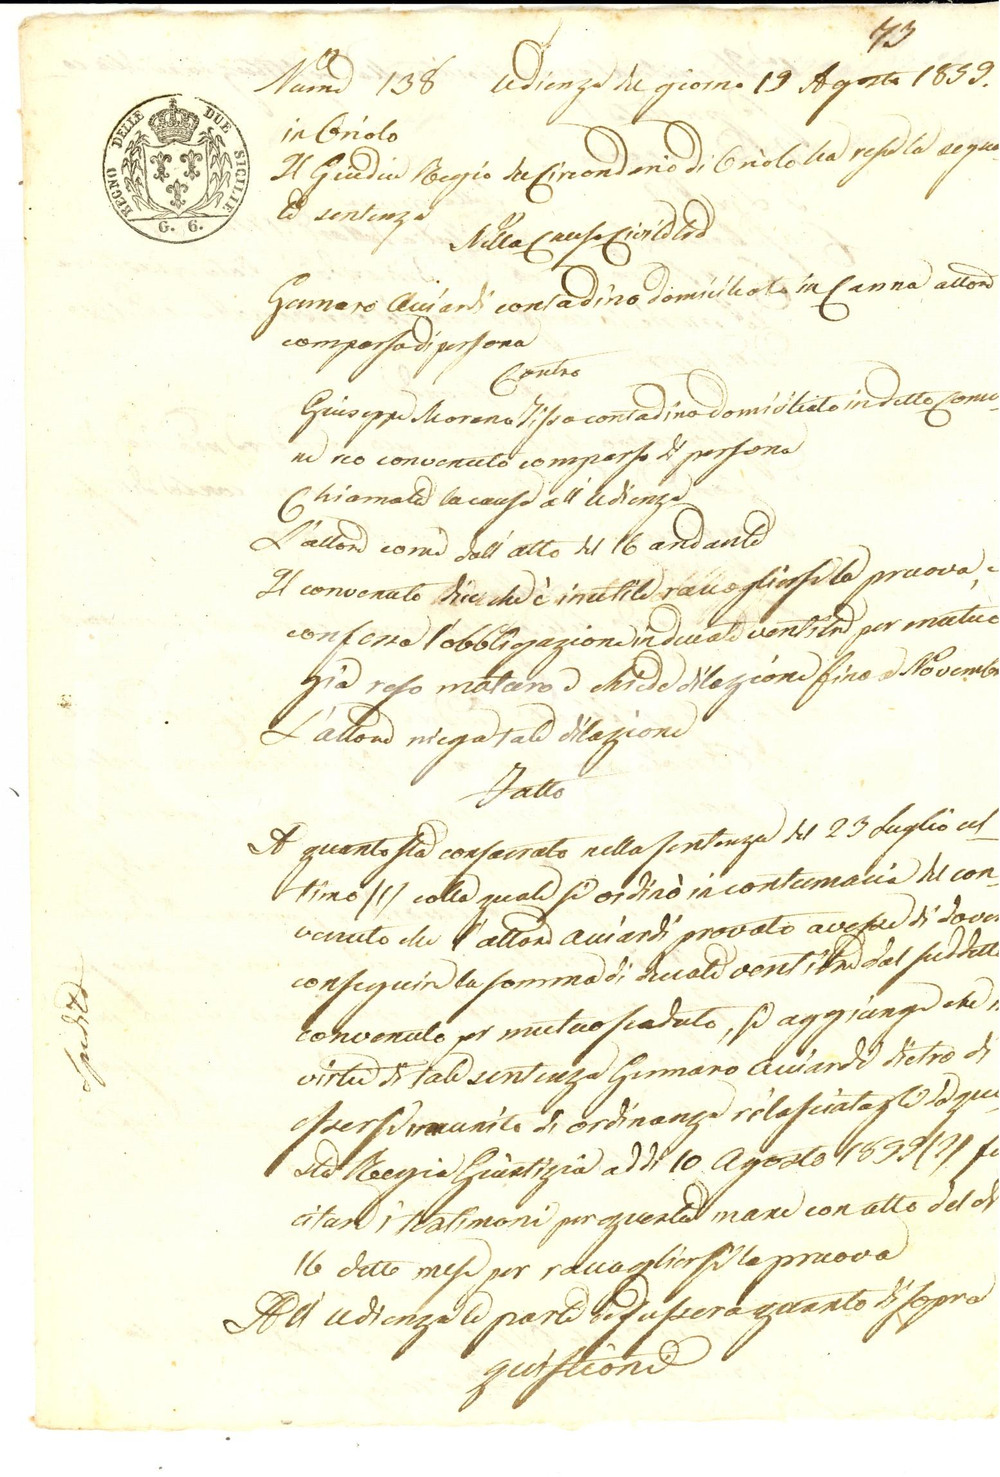 73
Num. 138 Udienza del giorno 19 Agosto 1859.
REGNO DELLE DUE SICILIE
G. 6.
in Oriolo
Il Giudice Regio del Circondario di Oriolo ha reso la seguen-
te sentenza
Nella Causa Civile tra
Gennaro Acciardi contadino domiciliato in Canna attore
comparso di persona
Contro
Giuseppe Morano contadino domiciliato in detto Comu-
ne reo convenuto comparso di persona
Chiamata la causa all'udienza
L'attore come dall'atto del 16 andante
Il convenuto dice che è inutile raccogliersi la pruova, e
confessa l'obbligazione in ducati ventitre per mutuo
già reso maturo e chiede dilazione fino a Novembre
L'attore niega tale dilazione
Fatto
A quanto sta consacrato nella sentenza del 23 Luglio ul-
timo (1) colla quale si ordinò in contumacia del con-
venuto che l'attore Acciardi provato avesse di dover
conseguire la somma di ducati ventitre dal suddetto
convenuto per mutuo scaduto, si aggiunge che in
virtù di tale sentenza Gennaro Acciardi dietro di
essersi munito di ordinanza rilasciatagli da que-
sta Regia Giustizia addì 10 Agosto 1859 (2) fe
citare i testimoni per questa mane con atto del dì
16 detto mese per raccogliersi la pruova
All'udienza le parti dedussero quanto di sopra
quistione
Spedita